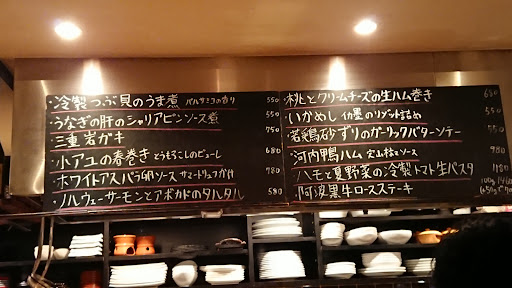 ・冷製つぶ貝のうま煮 バルサミコの香り 550
・うなぎの肝のシャリアピンソース煮 550
・三重岩ガキ 750
・小アユの春巻き とうもろこしのピューレ 580
・ホワイトアスパラ卵ソース サマートリュフがけ 980
・ノルウェーサーモンとアボカドのタルタル 580
・桃とクリームチーズの生ハム巻き 680
・いかめし 仏墨のリゾット詰め 550
・若鶏砂ずりのガーリックバターソテー
・河内鴨ハム 780
・ハモと夏野菜の冷製トマト生パスタ 1180
・阿波黒牛ロースステーキ